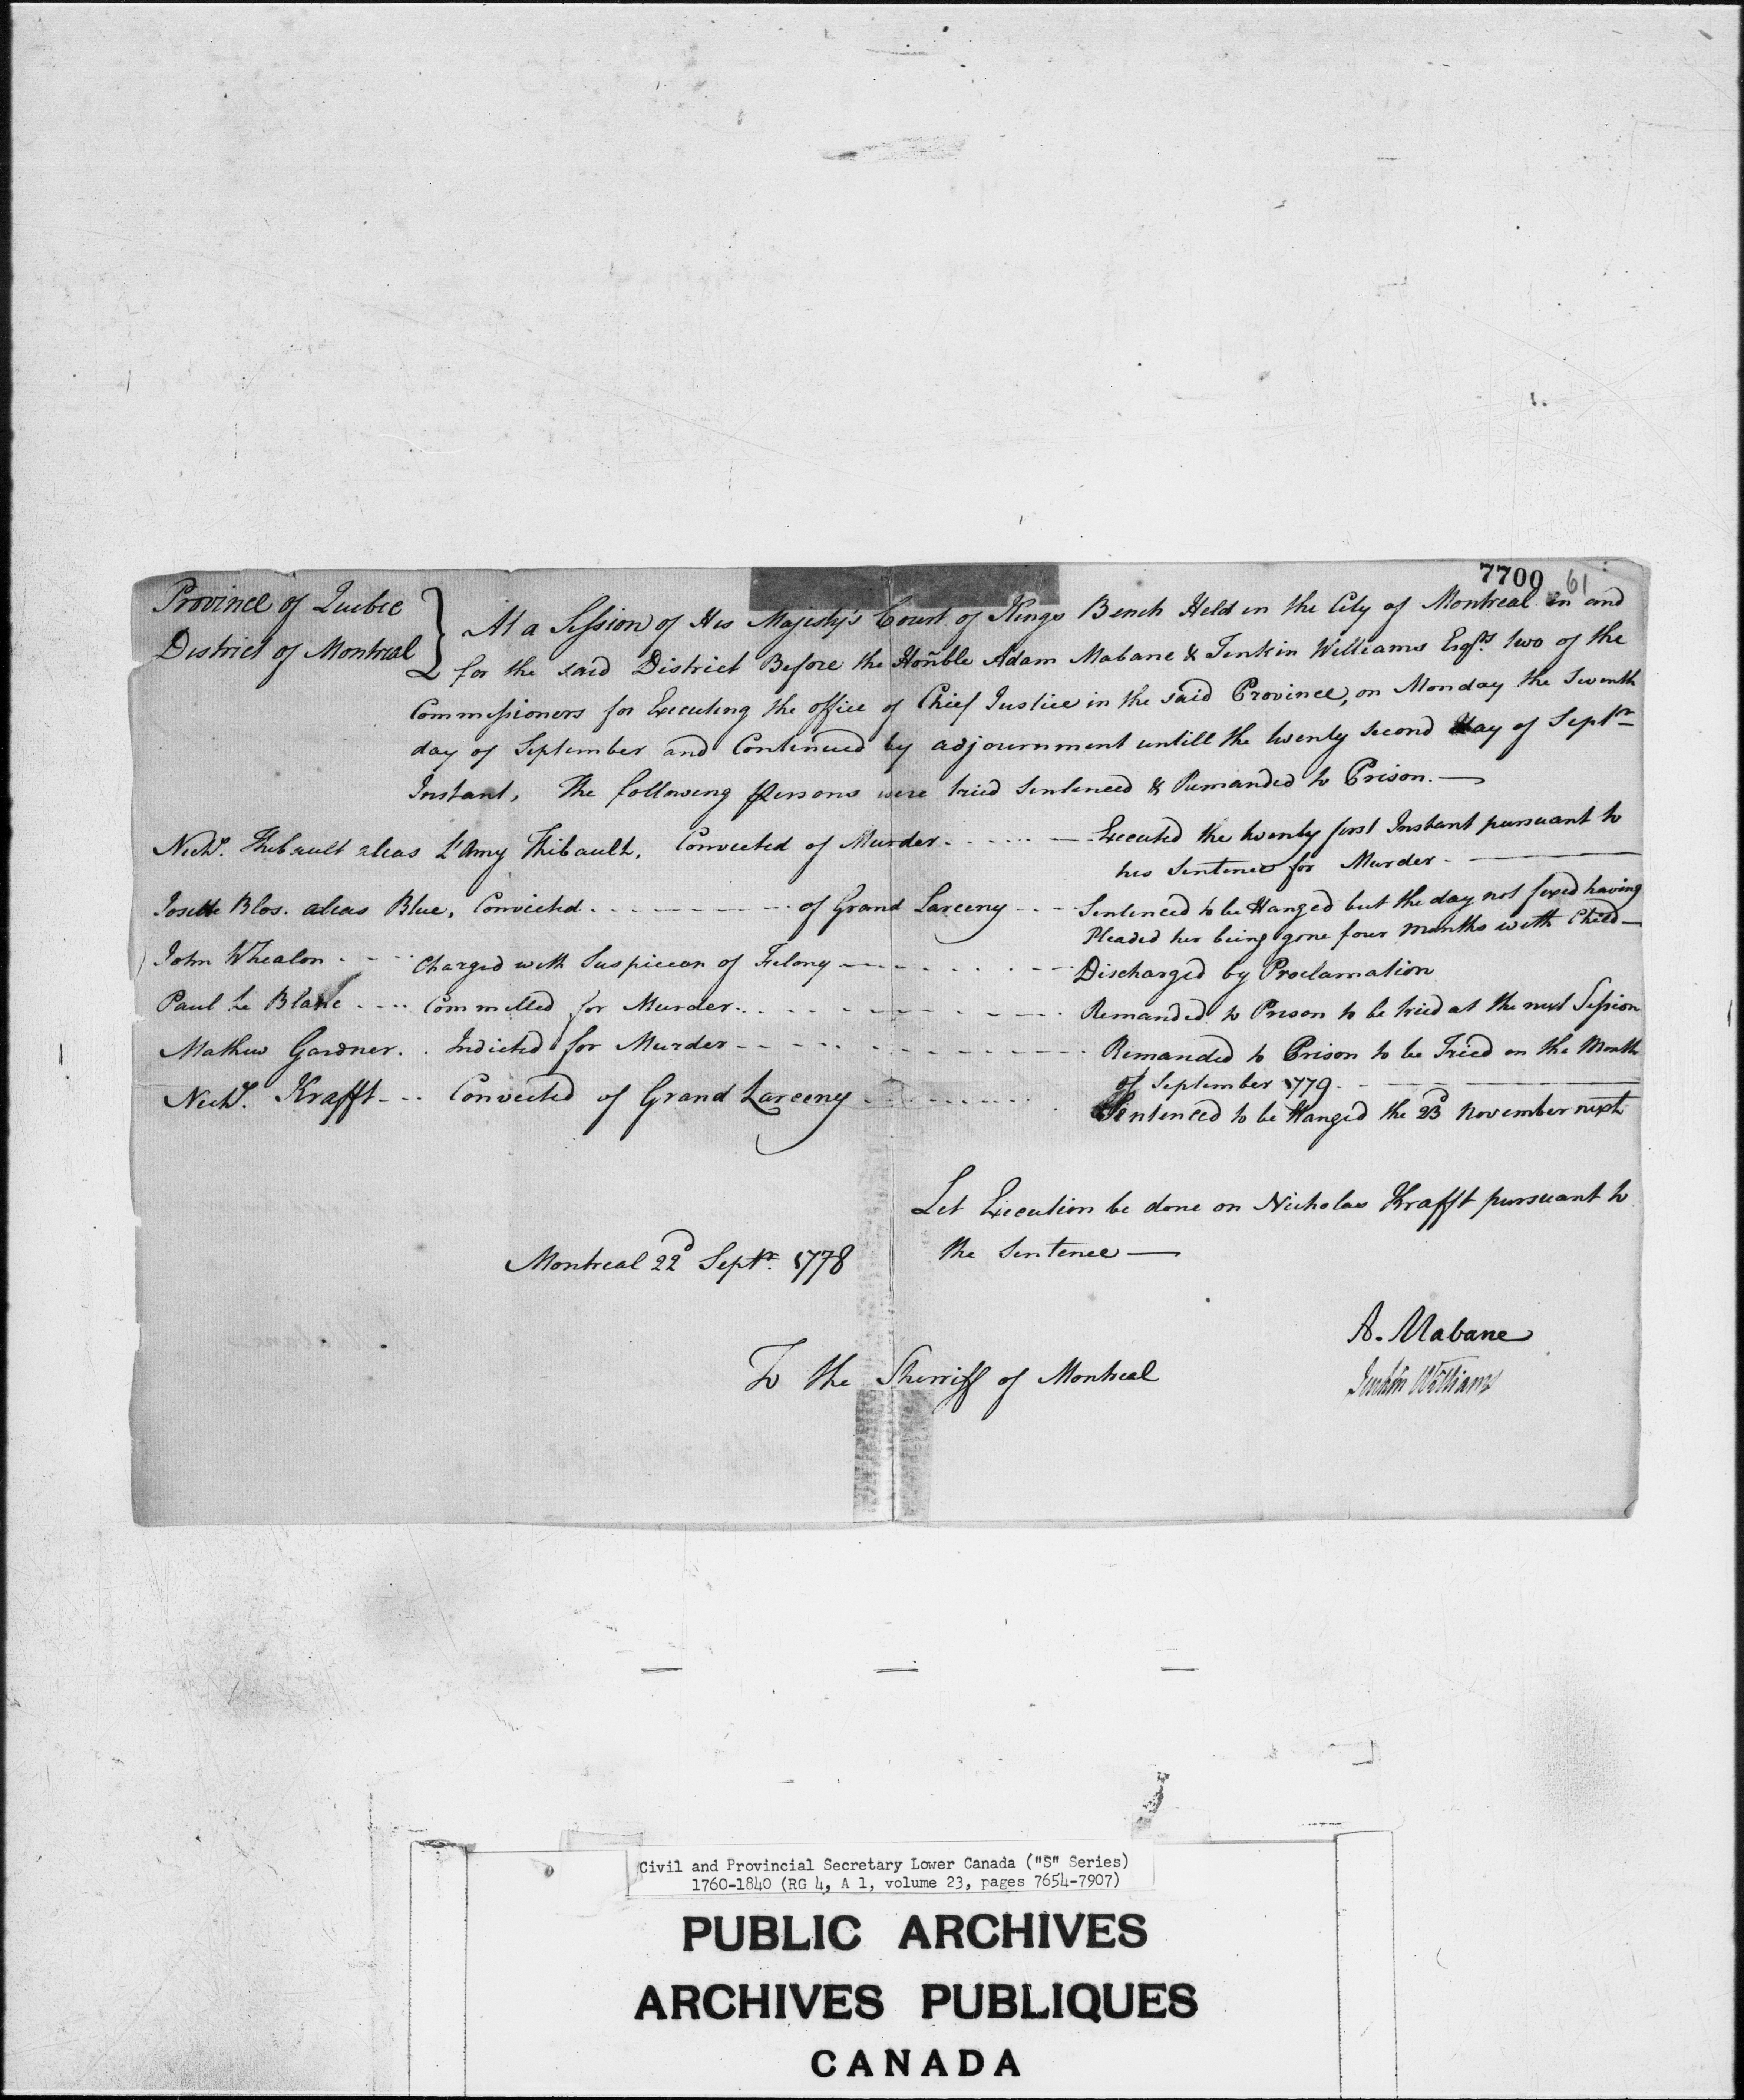 7700 61
Province of Quebec
District of Montreal
At a Session of His Majesty's Court of Kings Bench Held in the City of Montreal in and
for the said District Before the Honble Adam Mabane & Jenkin Williams Esqrs. two of the
Commissioners for Executing the office of Chief Justice in the said Province, on Monday the Seventh
day of September and Continued by adjournment untill the twenty second day of Septr
Instant, The following Persons were tried Sentenced & Remanded to Prison. —
Nichs. Thibault alias L'Amy Thibault, Convicted of Murder. - - - - - — Executed the twenty first Instant pursuant to
his Sentence for Murder - —
Josette Blos. alias Blue, Convicted. - - - - - - of Grand Larceny - - - Sentenced to be Hanged but the day not fixed having
Pleaded her being gone four Months with Child —
John Whealon - - - Charged with Suspicion of Felony - - - - - - - Discharged by Proclamation
Paul Le Blanc - - - - Committed for Murder. - - - - - - - - Remanded to Prison to be tried at the next Session
Mathew Gardner. . Indicted for Murder - - - - - - - - - Remanded to Prison to be Tried on the Month
of September 1779. - —
Nichs. Krafft - - - Convicted of Grand Larceny - - - - - - - Sentenced to be Hanged the 23d November next
Let Execution be done on Nicholas Krafft pursuant to
the Sentence —
Montreal 22d Septr. 1778
A. Mabane
Jenkin Williams
To the Sherriff of Montreal
Civil and Provincial Secretary Lower Canada ("S" Series)
1760-1840 (RG 4, A 1, volume 23, pages 7654-7907)
PUBLIC ARCHIVES
ARCHIVES PUBLIQUES
CANADA